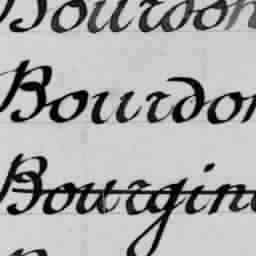 Bourdon
Bourdon
Bourgin